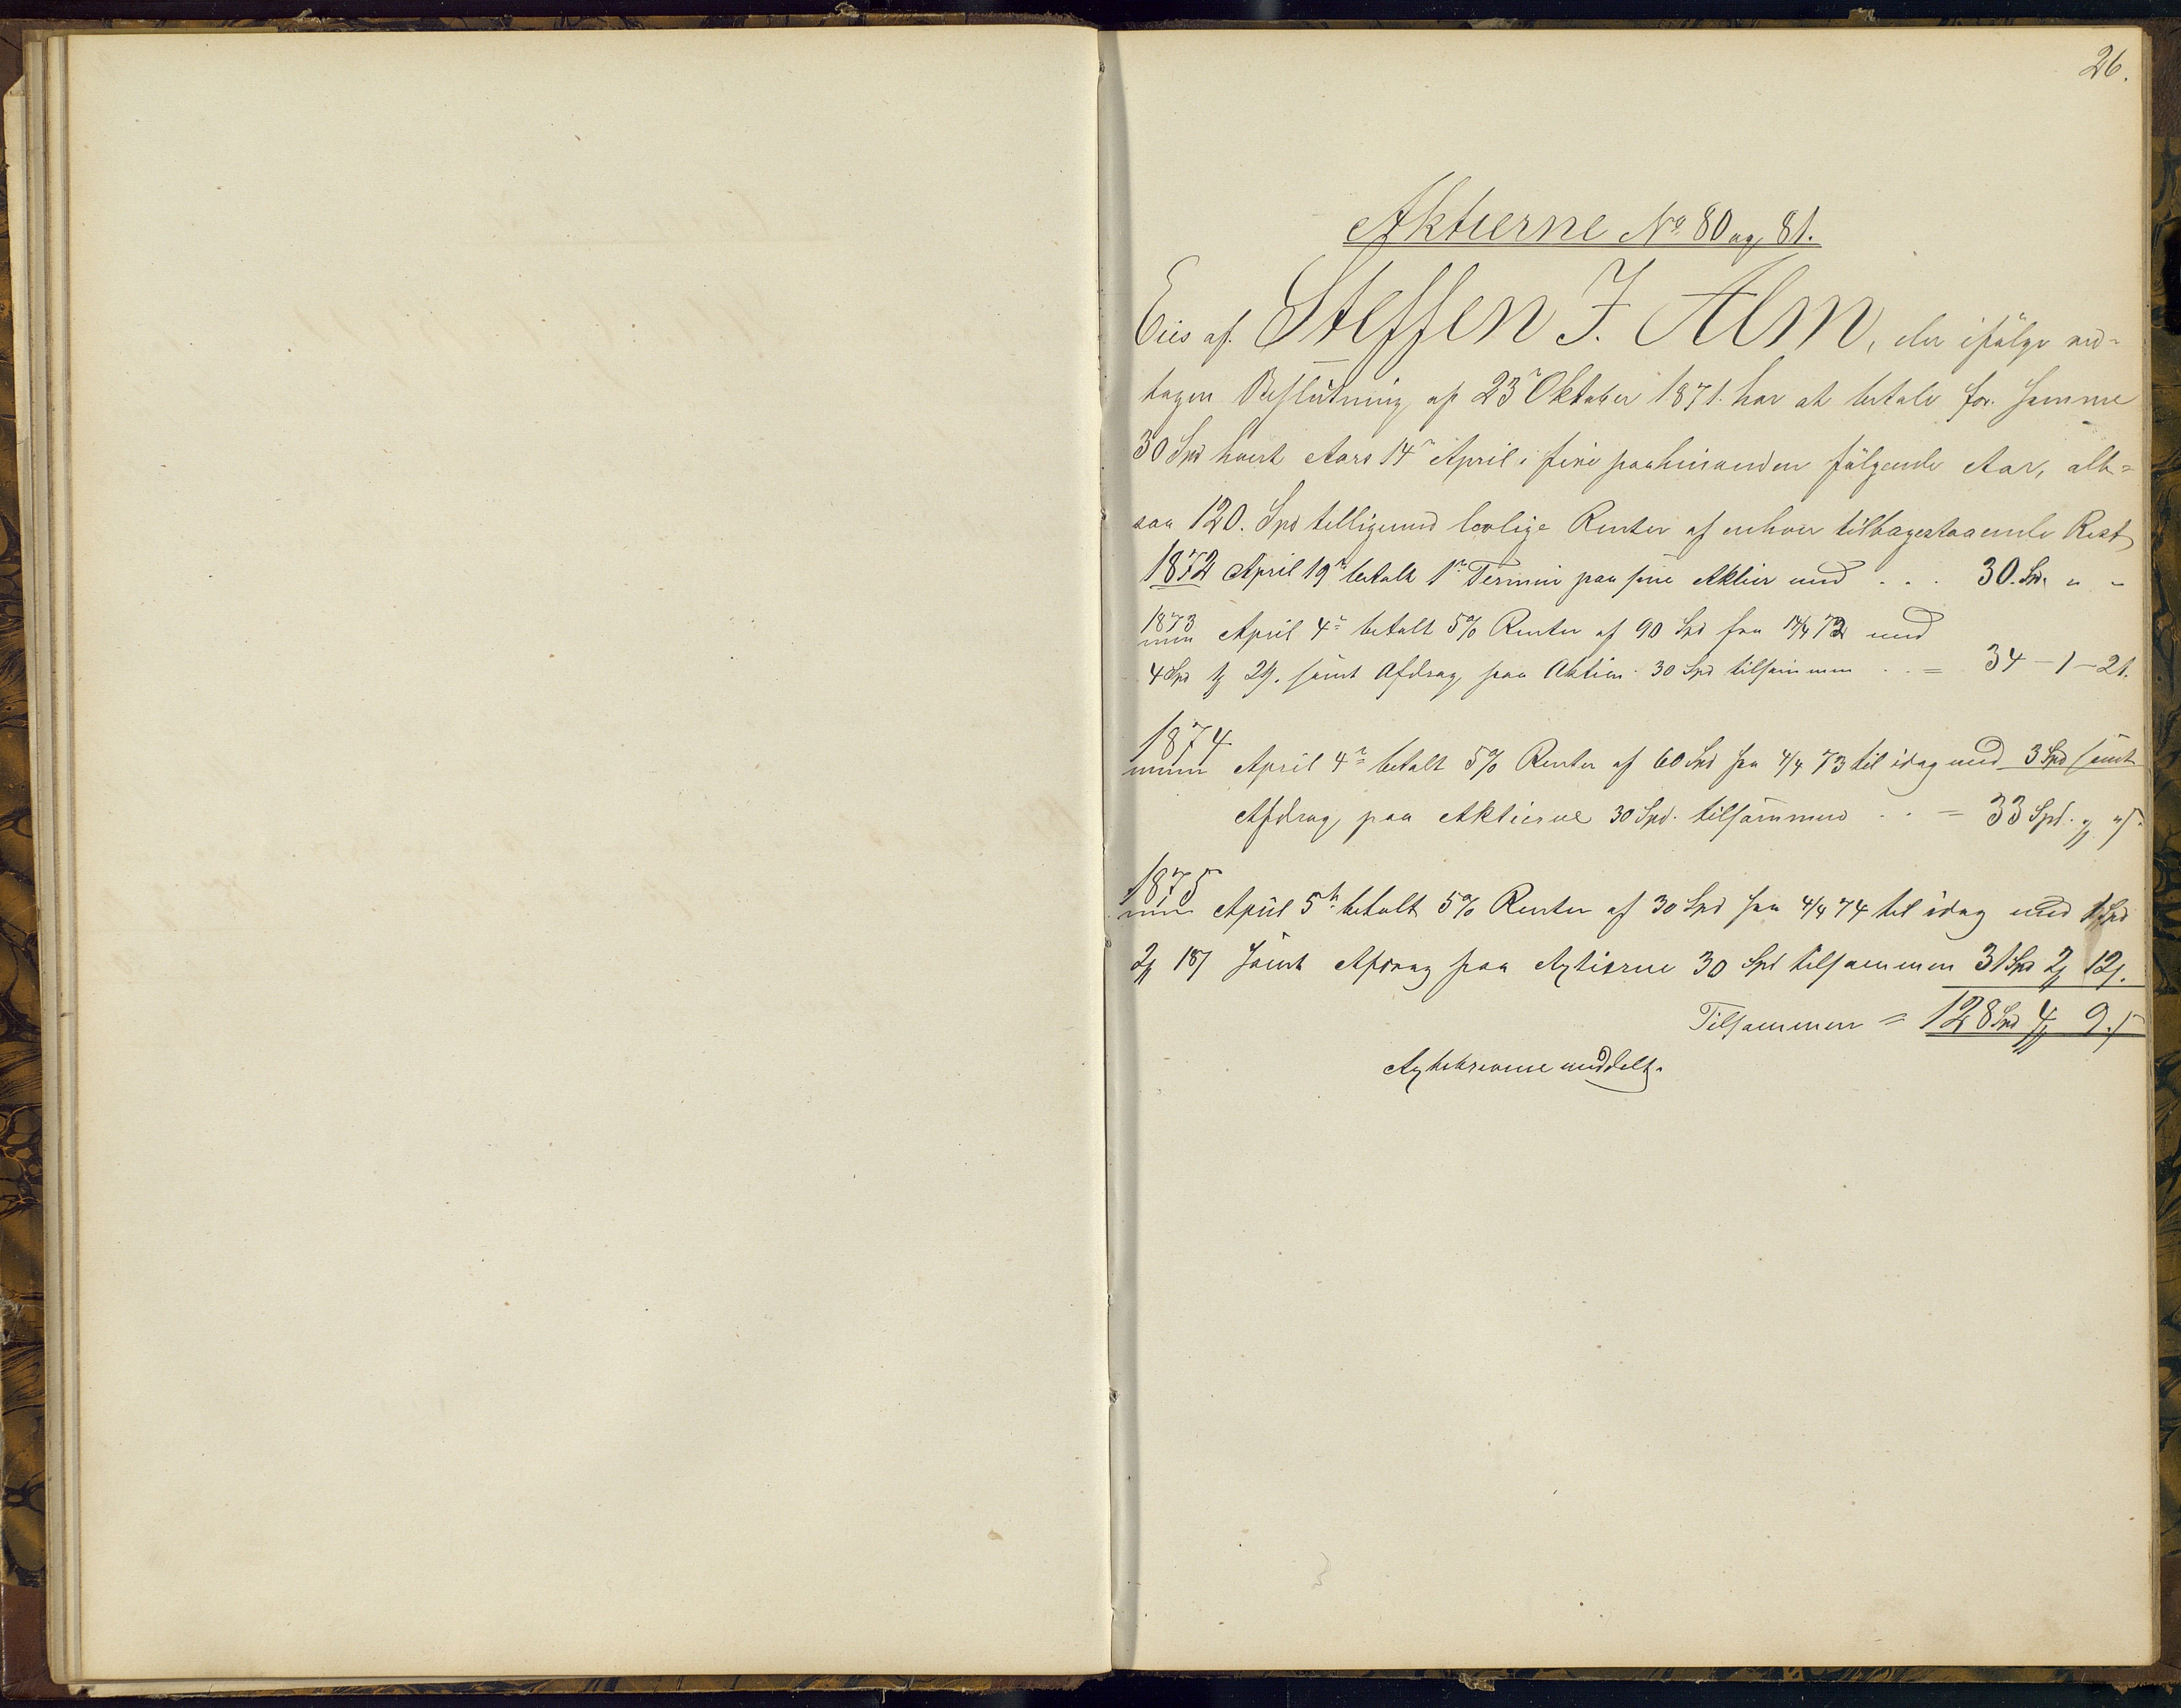 26.
Aktierne No 80 og 81.
Eies af Steffen J. Alm, der ifölge ved-
tagen Beslutning af 23r Oktober 1871 har at betale for samme
30 Spd hvert Aars 14r April i fire paahinanden fölgende Aar, alt-
saa 120. Spd tilligemed lovlige Renter af enhver tilbagestaaende Rest
1872 April 19r betalt 1r Termin paa sine Aktier med . . . 30. Spd. " -
1873 April 4r betalt 5% Renter af 90 Spd fra 14/4 72 med
4 Spd 1 21. samt Afdrag paa Aktien 30 Spd tilsammen . . = 34 - 1 - 21.
1874
April 4r betalt 5% Renter af 60 Spd fra 4/4 73 til idag med 3 Spd samt
Afdrag paa Aktierne 30 Spd. tilsammen . . = 33 Spd.
1875
April 5te betalt 5% Renter af 30 Spd fra 4/4 74 til idag med 1 Spd
2 samt Afdrag paa Agtierne 30 Spd tilsammen 31 Spd 2 12.
Tilsammen = 128 Spd 4 9.
Agtebrevene meddelt.